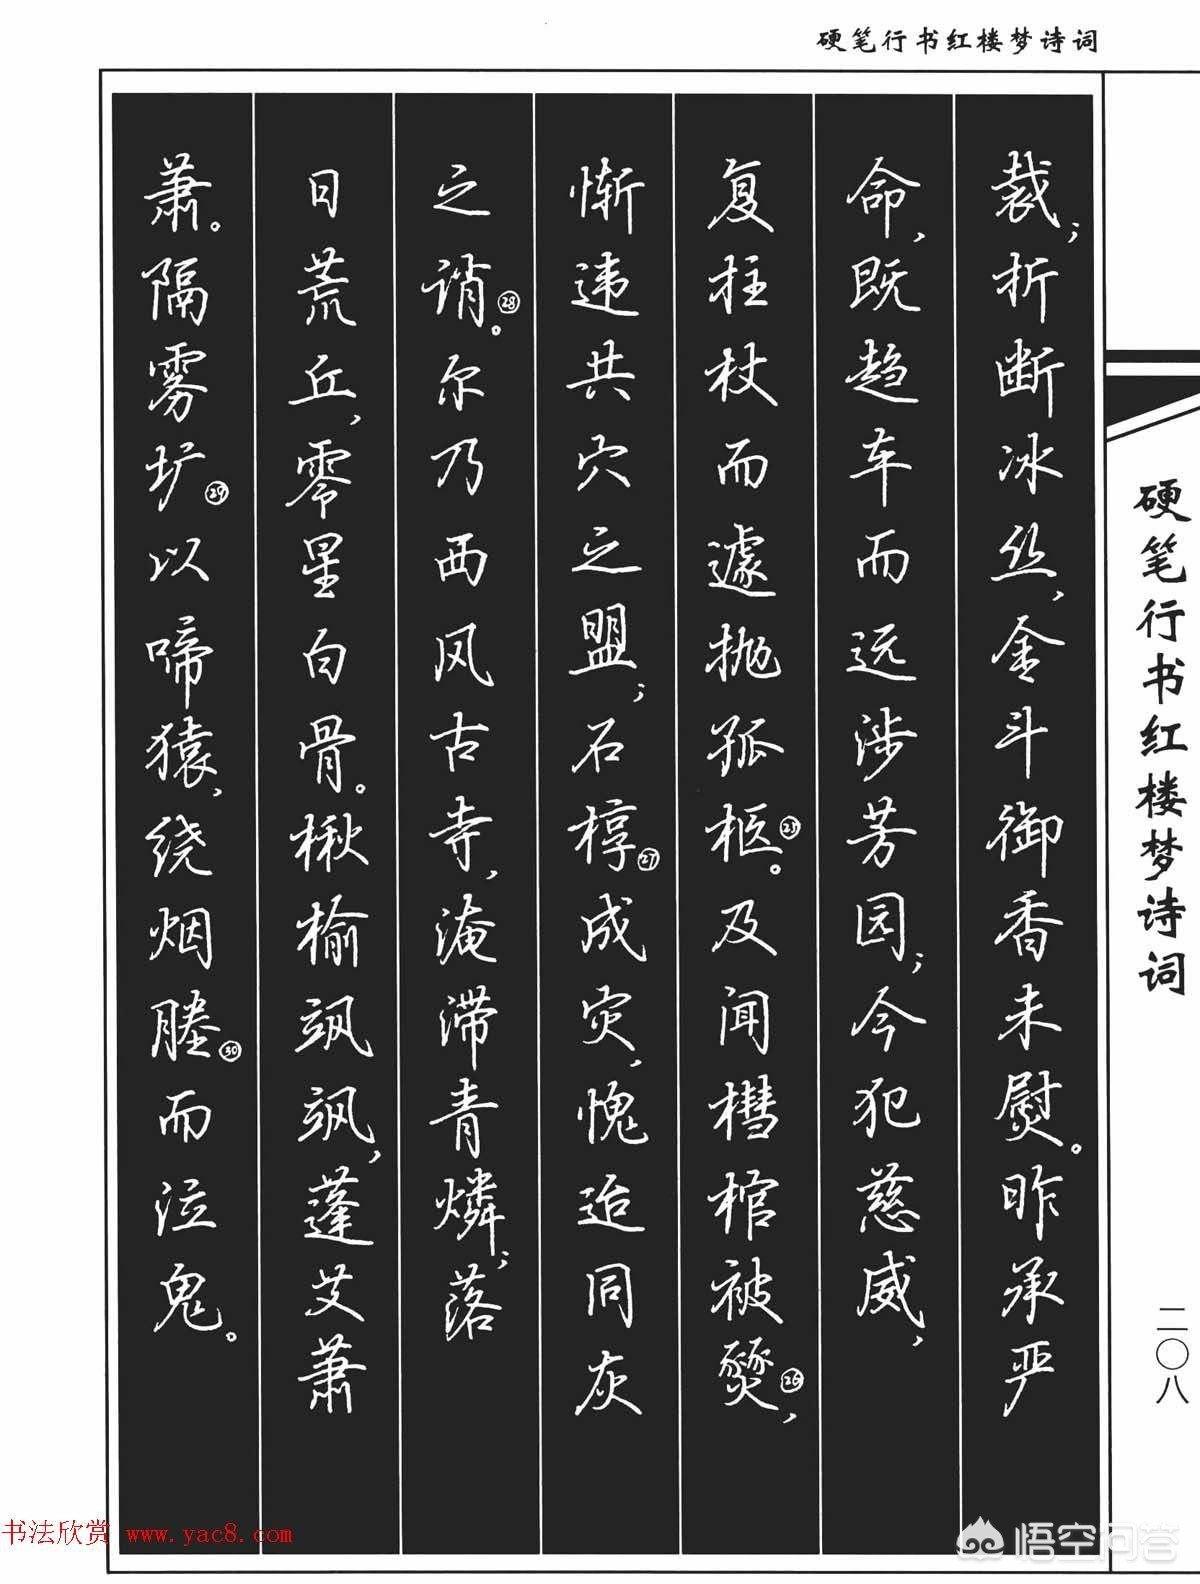 硬笔行书红楼梦诗词
裁；折断冰丝，金斗御香未熨。昨承严
命，既趋车而远涉芳园；今犯慈威，
复拄杖而遽抛孤柩㉕。及闻槥棺被燹㉖，
惭违共穴之盟；石椁㉗成灾，愧迨同灰
之诮㉘。尔乃西风古寺，淹滞青燐；落
日荒丘，零星白骨。楸榆飒飒，蓬艾萧
萧。隔雾圹㉙以啼猿，绕烟塍㉚而泣鬼。
硬笔行书红楼梦诗词
二〇八
书法欣赏 www.yac8.com
悟空问答